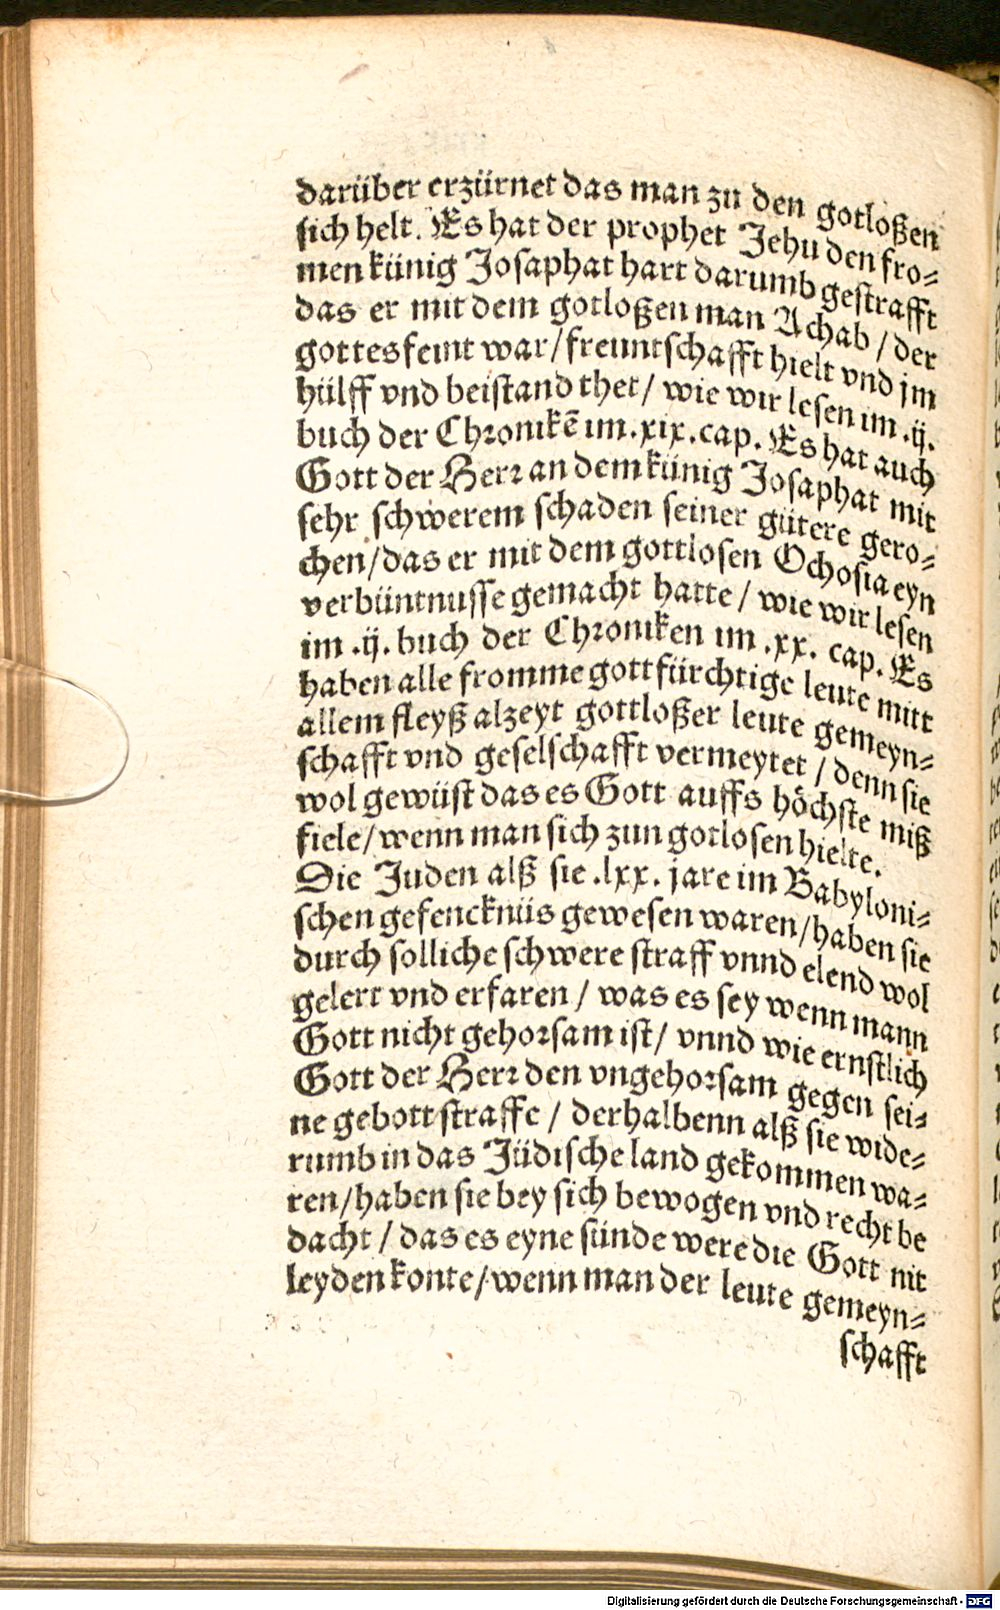 darüber erzürnet das man zu den gotloßen
sich helt. Es hat der prophet Jehu den fro⸗
men künig Josaphat hart darumb gestrafft
das er mit dem gotloßen man Achab / der
gottes feint war / freuntschafft hielt vnd jm
hülff vnd beistand thet / wie wir lesen im .ij.
buch der Chronikē im .xix. cap. Es hat auch
Gott der Herr an dem künig Josaphat mit
sehr schwerem schaden seiner gütere gero⸗
chen / das er mit dem gottlosen Ochosia eyn
verbüntnusse gemacht hatte / wie wir lesen
im .ij. buch der Chroniken im .xx. cap. Es
haben alle fromme gottfürchtige leute mitt
allem fleyß alzeyt gottloßer leute gemeyn⸗
schafft vnd geselschafft vermeytet / denn sie
wol gewüst das es Gott auffs höchste miß
fiele / wenn man sich zun gotlosen hielte.
Die Juden alß sie .lxx. jare im Babyloni⸗
schen gefencknüs gewesen waren / haben sie
durch solliche schwere straff vnnd elend wol
gelert vnd erfaren / was es sey wenn mann
Gott nicht gehorsam ist / vnnd wie ernstlich
Gott der Herr den vngehorsam gegen sei⸗
ne gebott straffe / derhalbenn alß sie wide⸗
rumb in das Jüdische land gekommen wa⸗
ren / haben sie bey sich bewogen vnd recht be
dacht / das es eyne sünde were die Gott nit
leyden konte / wenn man der leute gemeyn⸗
schafft
Digitalisierung gefördert durch die Deutsche Forschungsgemeinschaft - DFG